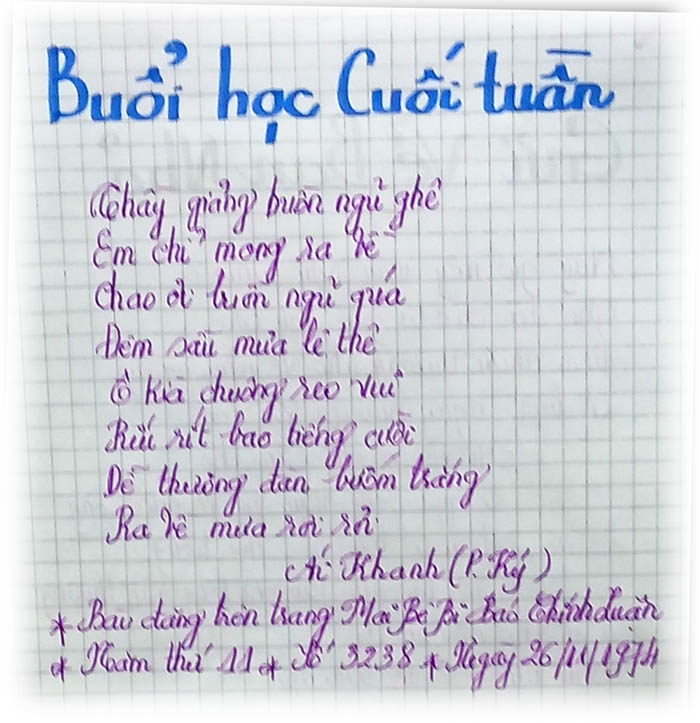 Buổi học Cuối tuần
Thầy giảng buồn ngủ ghê
Em chỉ mong ra về
Chao ơi buồn ngủ quá
Đêm sầu mưa lê thê
Ồ kìa chuông reo vui
Ríu rít bao tiếng cười
Dễ thương đàn bướm trắng
Ra về mưa rơi rơi
Ái Khanh (P. Ký)
* Bài đăng trên trang Mai Bê Bi Báo Chính Luận
* Năm thứ 11 * Số 3238 * Ngày 26/11/1974